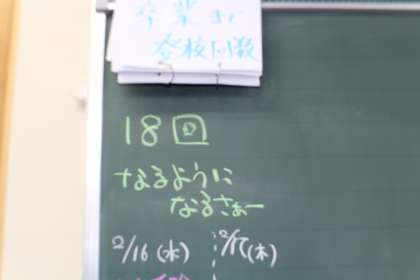 卒業まで
登校回数
18回
なるように
なるさぁー
2/16(水)
2/17(木)